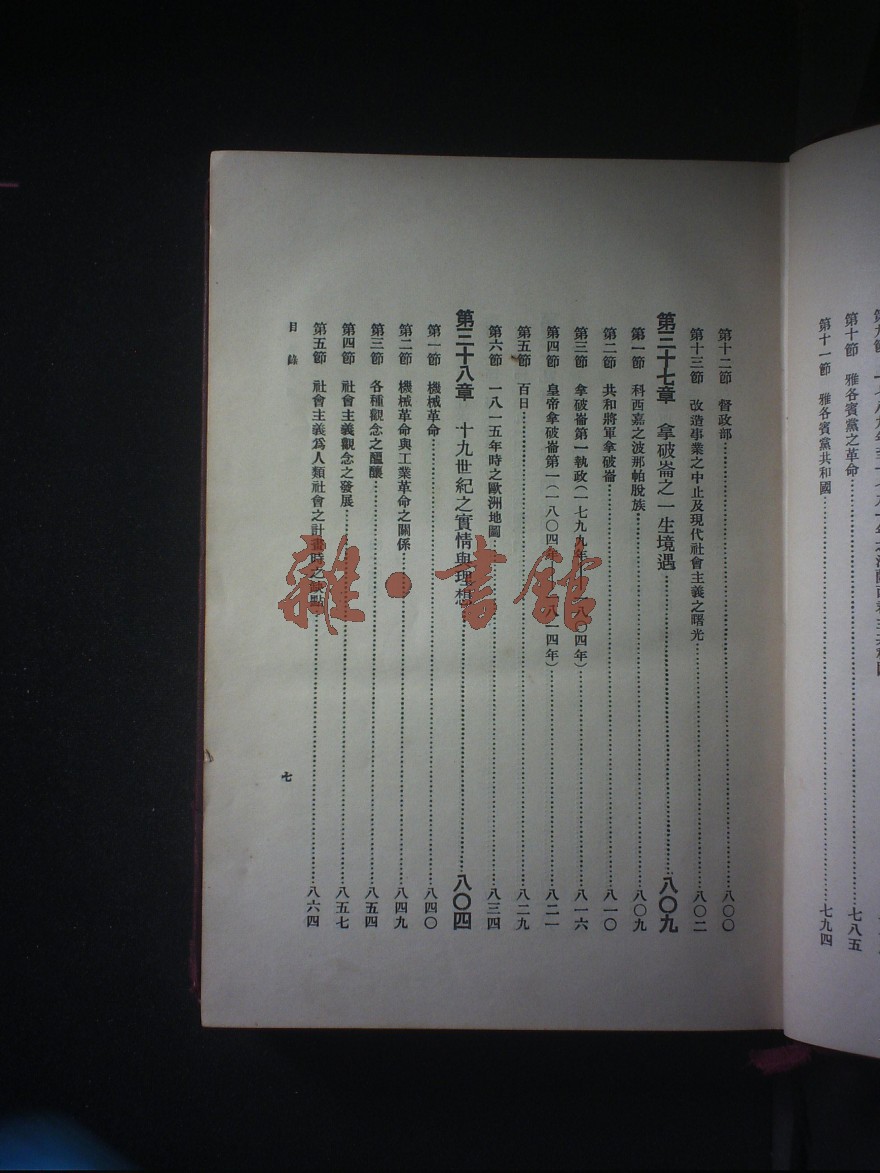 第十節 雅各賓黨之革命 七八五
第十一節 雅各賓黨共和國 七九四
第十二節 督政部 八〇〇
第十三節 改造事業之中止及現代社會主義之曙光 八〇二
第三十七章 拿破崙之一生境遇 八〇九
第一節 科西嘉之波那帕脫族 八〇九
第二節 共和將軍拿破崙 八一〇
第三節 拿破崙第一執政(一七九九年—一八〇四年) 八一六
第四節 皇帝拿破崙第一(一八〇四年—一八一四年) 八二一
第五節 百日 八二九
第六節 一八一五年時之歐洲地圖 八三四
第三十八章 十九世紀之實情與理想 八〇四
第一節 機械革命 八四〇
第二節 機械革命與工業革命之關係 八四九
第三節 各種觀念之醞釀 八五四
第四節 社會主義觀念之發展 八五七
第五節 社會主義爲人類社會之計畫時之缺點 八六四
目錄
七
雜·書館